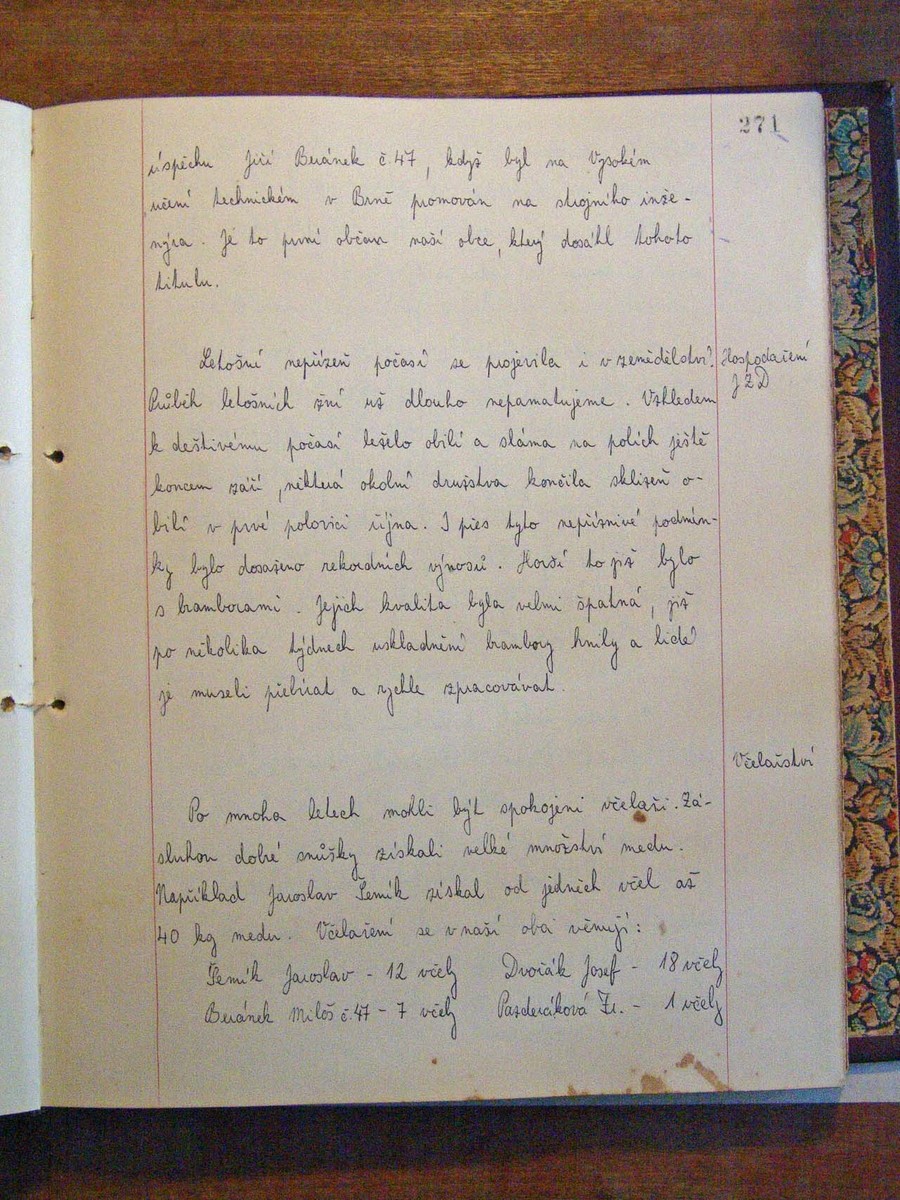 271
úspěchu Jiří Beránek č. 47, když byl na Vysokém
učení technickém v Brně promován na strojního inže-
nýra. Je to první občan naší obce, který dosáhl tohoto
titulu.
Letošní nepřízeň počasí se projevila i v zemědělství. Hospodaření
JZD
Průběh letošních žní už dlouho nepamatujeme. Vzhledem
k deštivému počasí leželo obilí a sláma na polích ještě
koncem září, některá okolní družstva končila sklizeň o-
bilí v prvé polovici října. I přes tyto nepříznivé podmín-
ky bylo dosaženo rekordních výnosů. Horší to již bylo
s bramborami. Jejich kvalita byla velmi špatná, již
po několika týdnech uskladnění brambory hnily a lidé
je museli přebírat a rychle zpracovávat.
Včelařství
Po mnoha letech mohli být spokojeni včelaři. Zá-
sluhou dobré snůšky získali velké množství medu.
Například Jaroslav Šemík získal od jedněch včel až
40 kg medu. Včelaření se v naší obci věnují:
Šemík Jaroslav - 12 včely Dvořák Josef - 18 včely
Beránek Miloš č. 47 - 7 včely Pazderáková Fr. - 1 včely